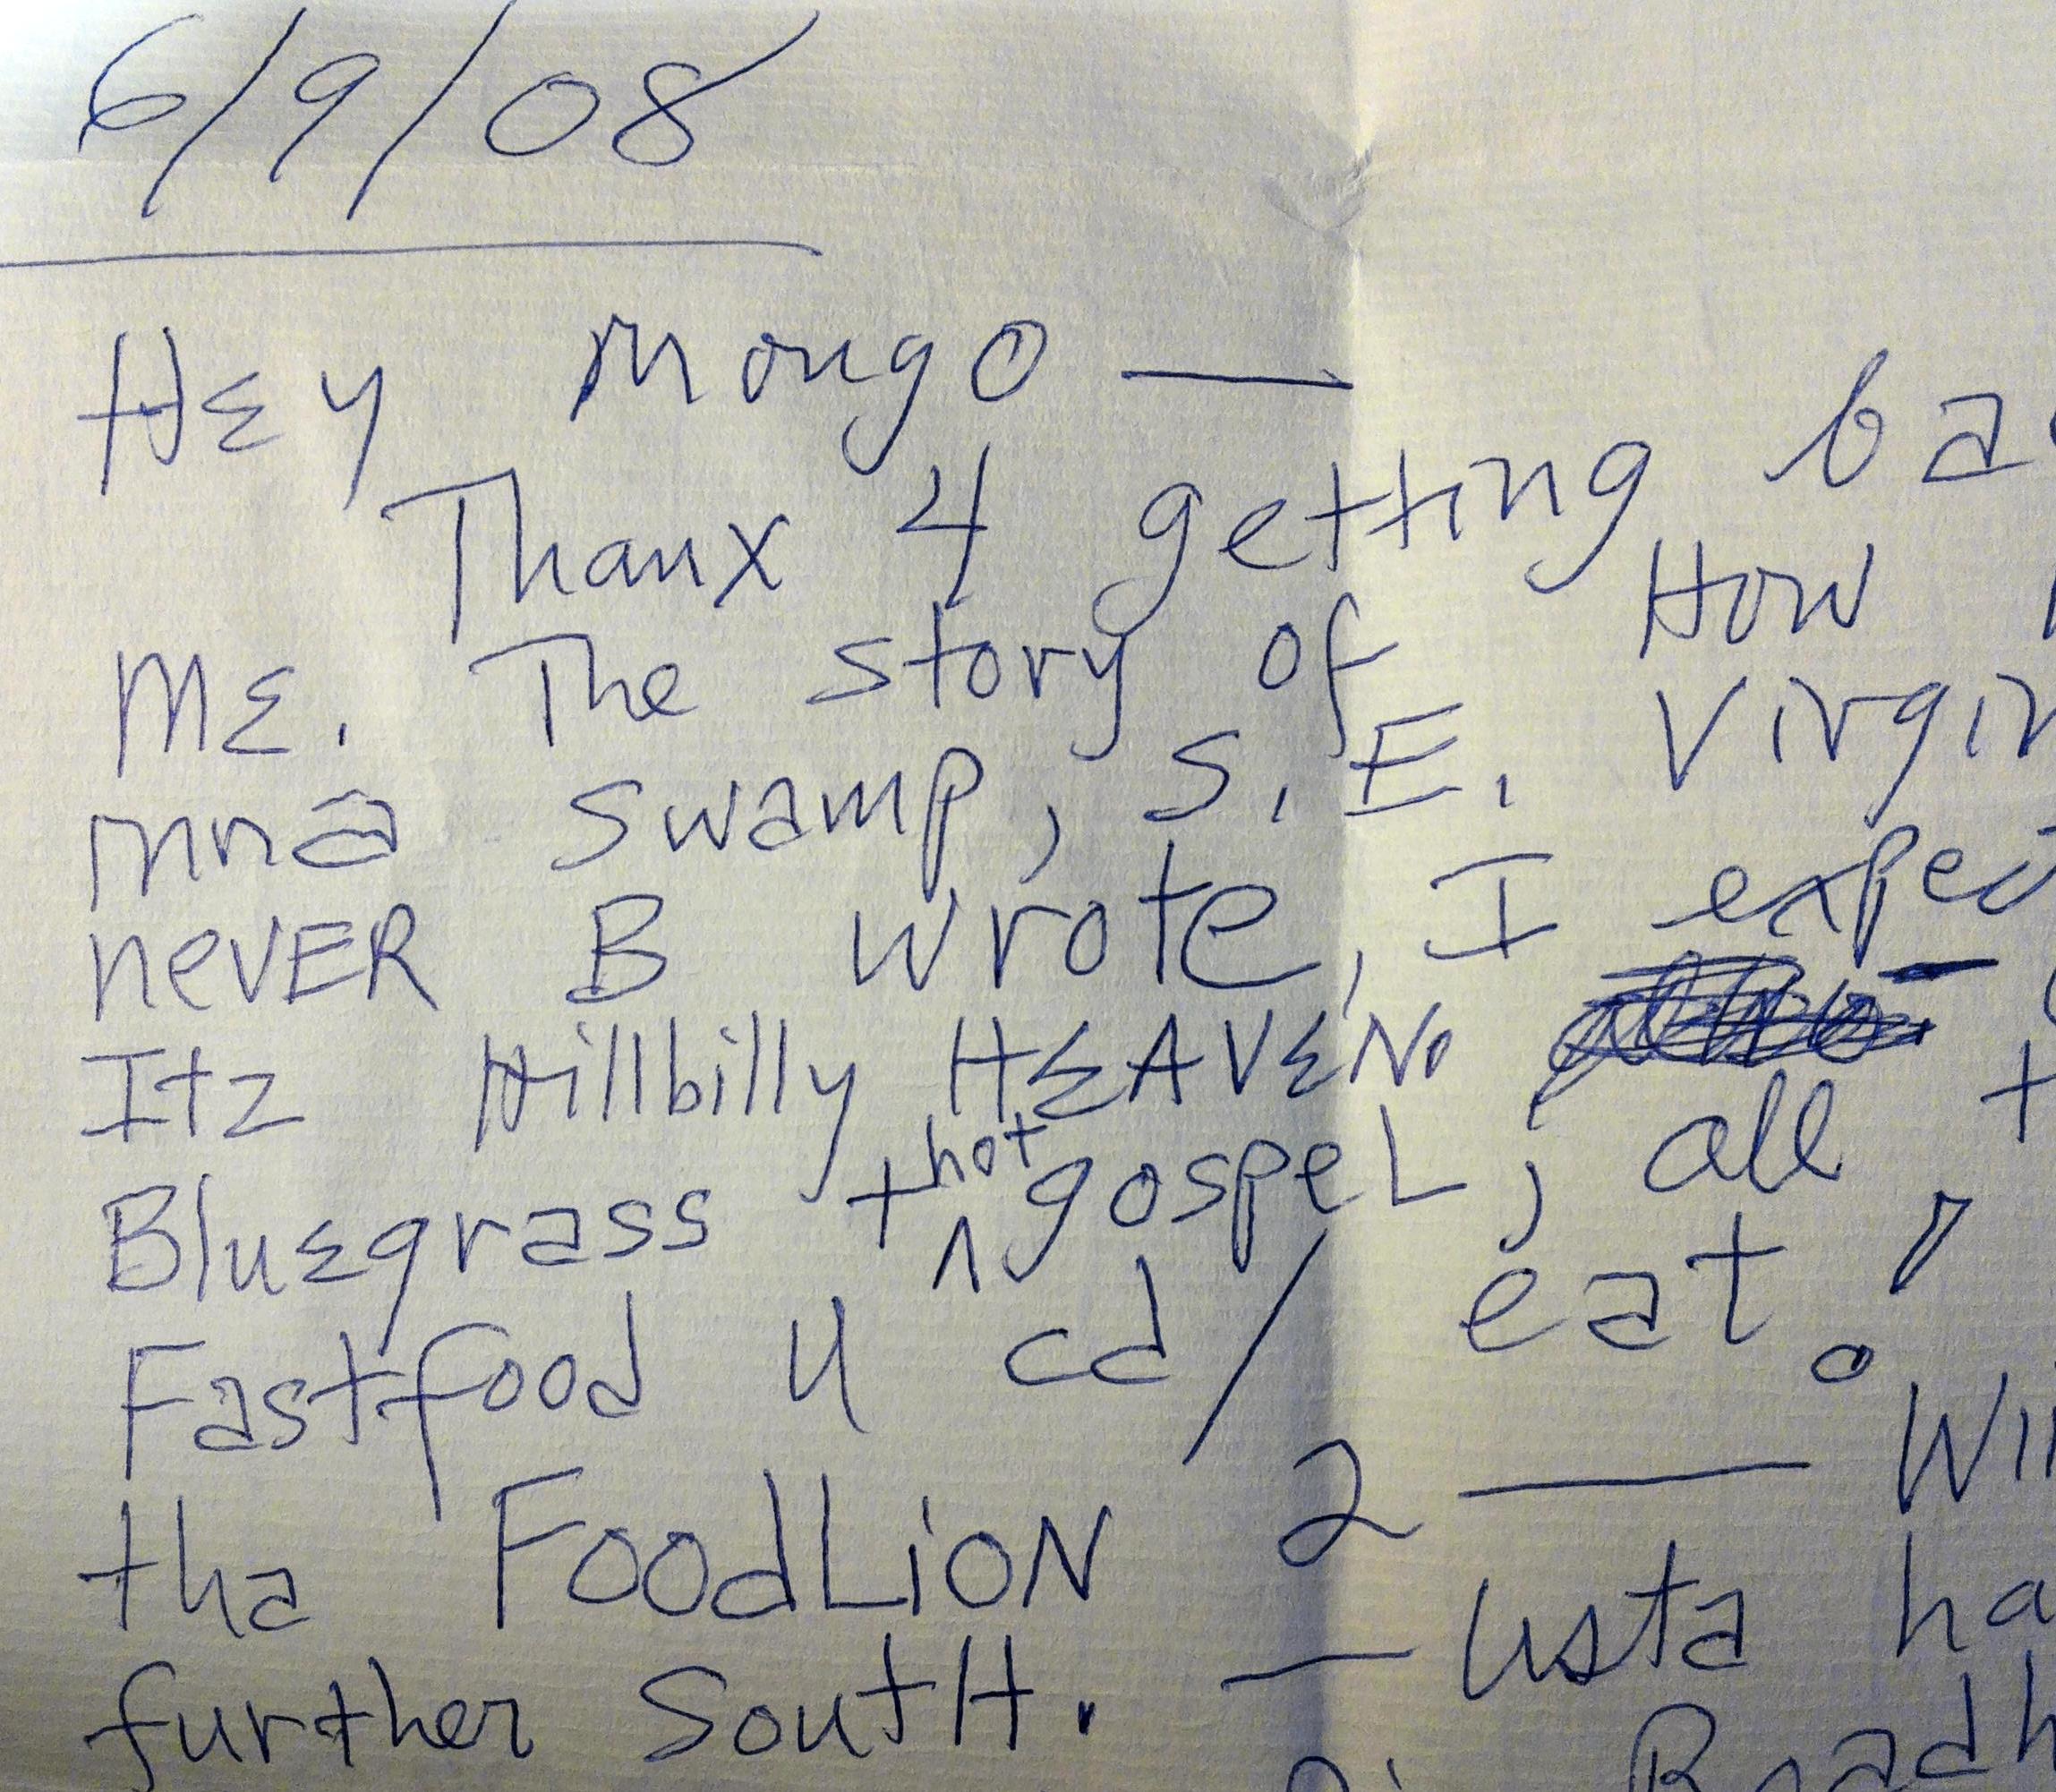 6/9/08
HEY Mongo —
Thanx 4 getting ba
ME. The story of How
mna swamp, S.E. Virgin
neVER B wrote, I expect
Itz Hillbilly HEAVEN
BluEgrass + hot gospeL, all t
Fastfood U cd/ eat.
tha FoodLioN 2 — Wi
further SoutH. — usta ha
Roadh